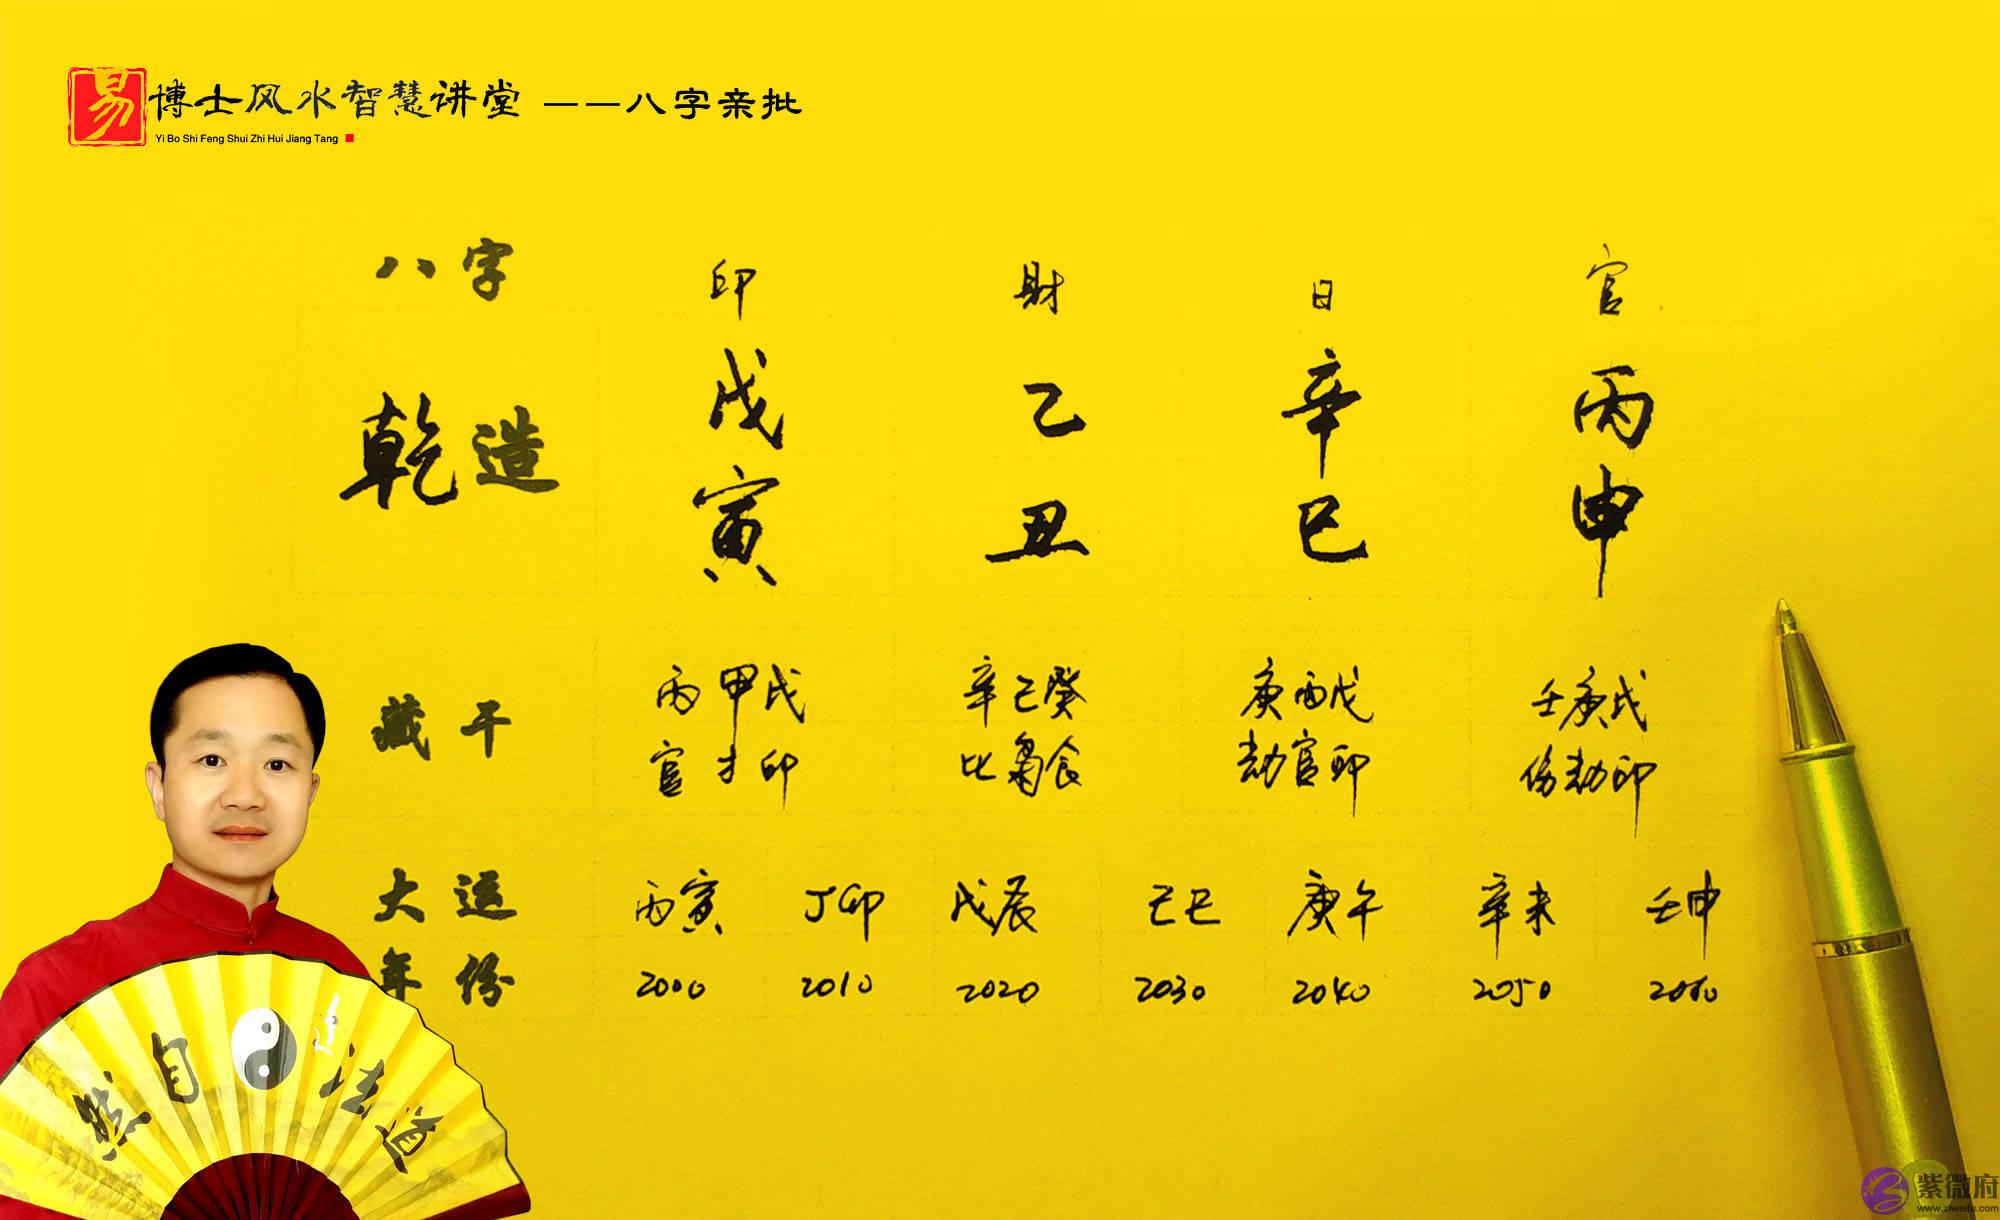 易 博士风水智慧讲堂 ——八字亲批
Yi Bo Shi Feng Shui Zhi Hui Jiang Tang
八字 印 财 日 官
乾造 戊 乙 辛 丙
寅 丑 巳 申
藏干 丙甲戊 辛己癸 庚丙戊 壬庚戊
官才印 比枭食 劫官印 伤劫印
大运 丙寅 丁卯 戊辰 己巳 庚午 辛未 壬申
年份 2000 2010 2020 2030 2040 2050 2060
然自法道
紫微府
www.ziweifu.com